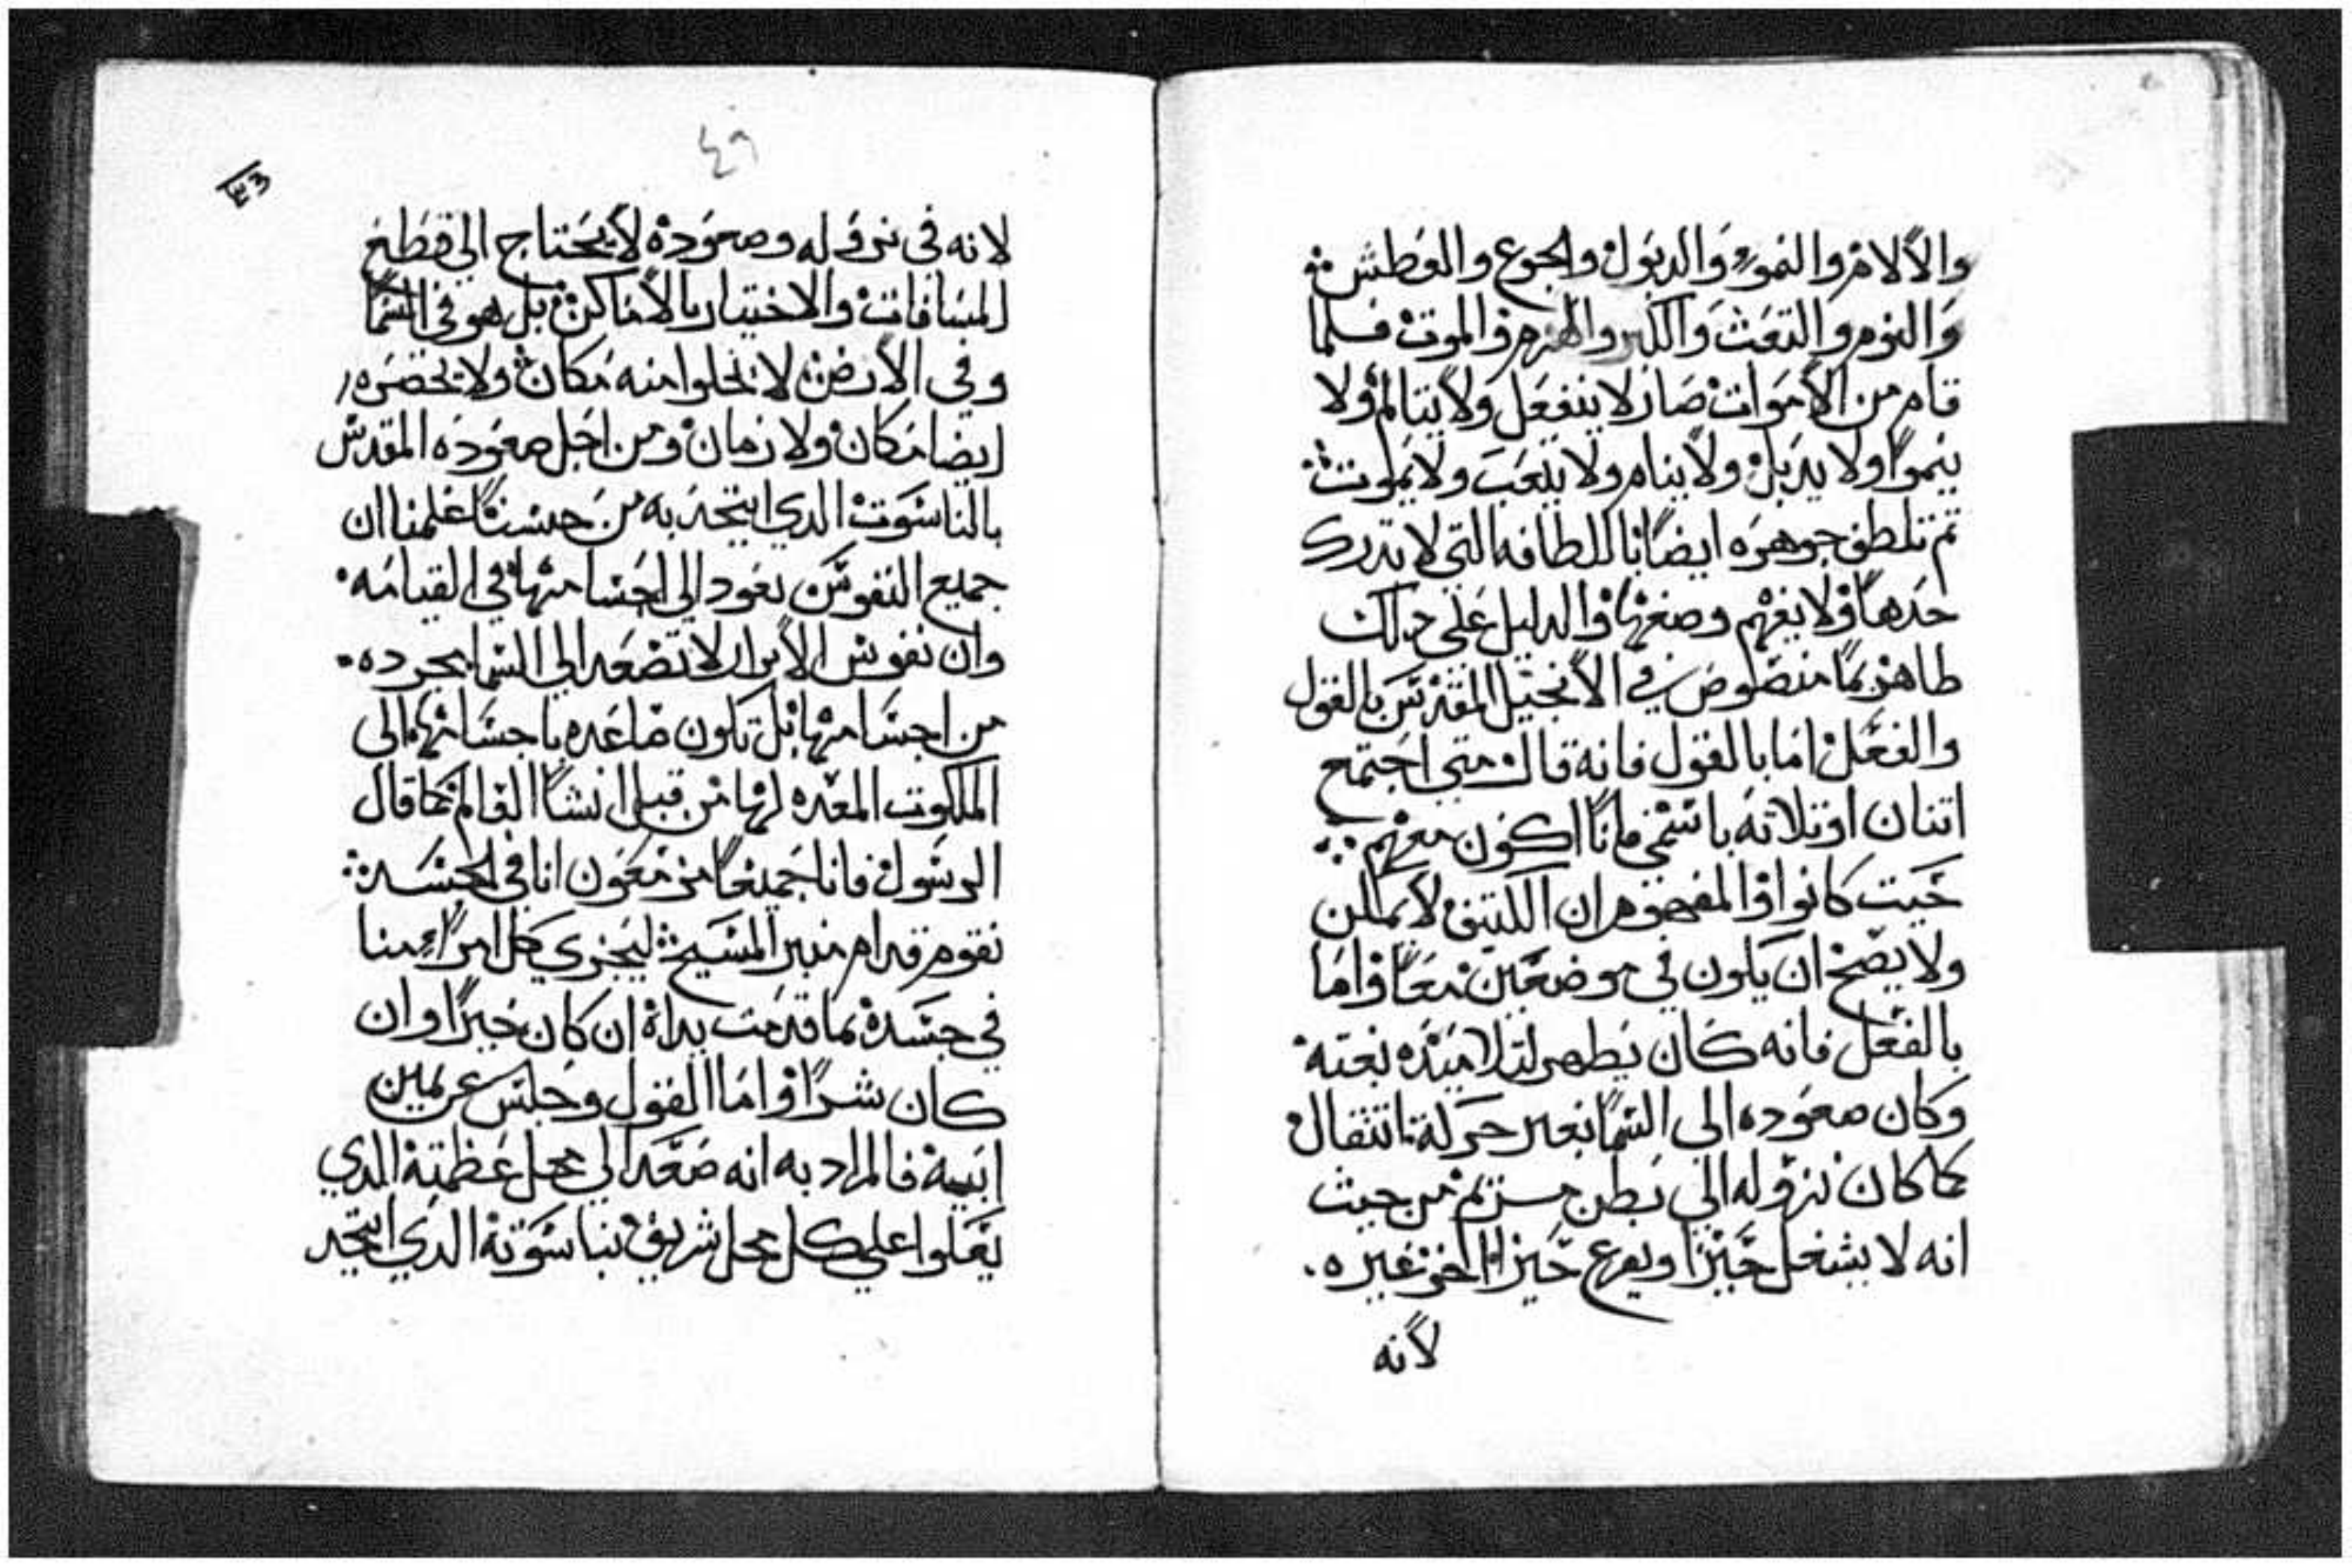 والالام والنمو والدبول والجوع والعطش
والنوم والتعب والكبر والهرم والموت فلما
قام من الاموات صار لا ينفعل ولا يتالم ولا
ينموا ولا يدبل ولا ينام ولا يتعب ولا يموت
تم تلطف جوهره ايضا باللطافه التي لا تدرك
حدها ولا يفهم وصفها والدليل على دلك
طاهر بما منصوص في الانجيل المقدس بالقول
والفعل اما بالقول فانه قال متي اجتمع
اتنان او تلاته باسمي فانا اكون معهم
حيت كانوا والمفهوم ان الكتيف لا يمكن
ولا يصح ان يكون في موضعين معا واما
بالفعل فانه كان يطهر لتلاميده بغته
وكان صعوده الى السما بغير حركة انتقال
كما كان نزوله الي بطن مريم من حيث
انه لا يشغل حيزا ويفرغ حيزا اخر غيره
لانه
٤٩
لانه في نزوله وصعوده لا يحتاج الي قطع
المسافات والاختيار بالاماكن بل هو في السما
وفي الارض لا يخلوا منه مكان ولا يحصره
ايضا مكان ولا زمان ومن اجل صعوده المقدس
بالناسوت الدي اتحد به من جسنا علمنا ان
جميع النفوس تعود الي اجسامها في القيامه
وان نفوس الابرار لا تصعد الي السما مجرده
من اجسامها بل تكون صاعده باجسامها الى
الملكوت المعده لها من قبل انشا العالم كما قال
الرسول فانا جميعا مزمعون انا في الجسد
نقوم قدام منبر المسيح ليجزي كل امرء منا
في جسده بما قدمت يداه ان كان خيرا وان
كان شرا واما القول وجلس عن يمين
ابيه فالمراد به انه صعد الي محل عظمته الدي
يعلوا على كل محل شريف بناسوته الدي اتحد